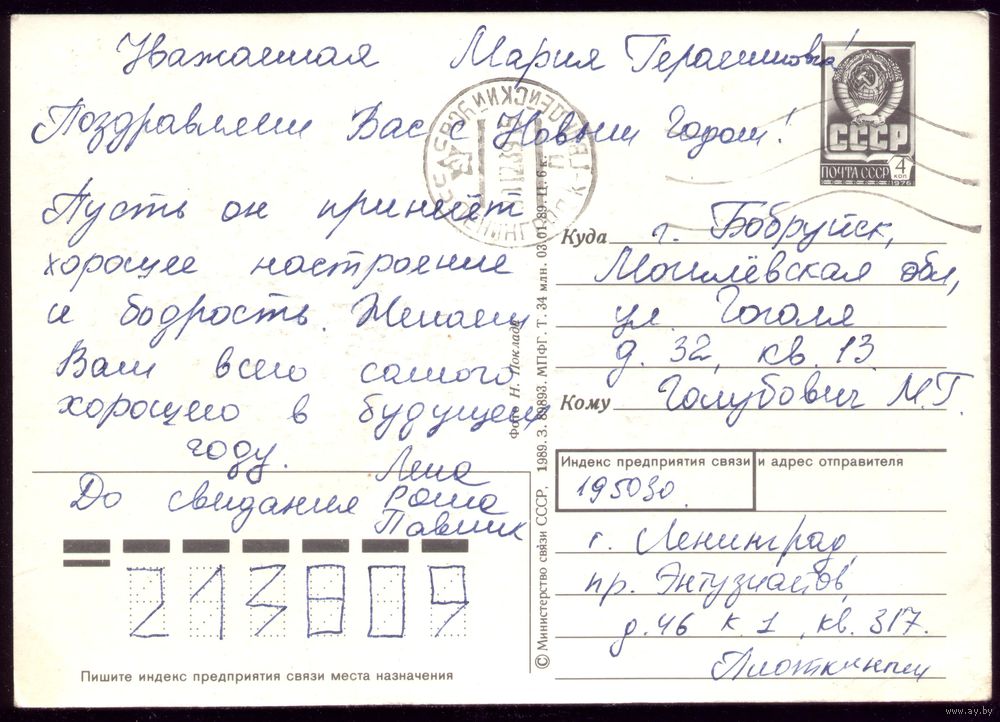 Уважаемая Мария Герасимовна!
Поздравляем Вас с Новым Годом!
Пусть он принесёт
хорошее настроение
и бодрость. Желаем
Вам всего самого
хорошего в будущем
году.
Лена
До свидания Рома
Павлик
213809
Пишите индекс предприятия связи места назначения
Фото Н. Поклада
© Министерство связи СССР, 1989. З. 89893. МПФГ. Т. 34 млн. 03.01.89. Ц. 6 к.
СССР
ПОЧТА СССР
4 коп
1976
Куда г. Бобруйск,
Могилёвская обл,
ул. Гоголя
д. 32, кв. 13.
Кому Голубович М.Г.
Индекс предприятия связи и адрес отправителя
195030.
г. Ленинград,
пр. Энтузиастов,
д. 46 к. 1, кв. 317.
Плоткиным
www.ay.by